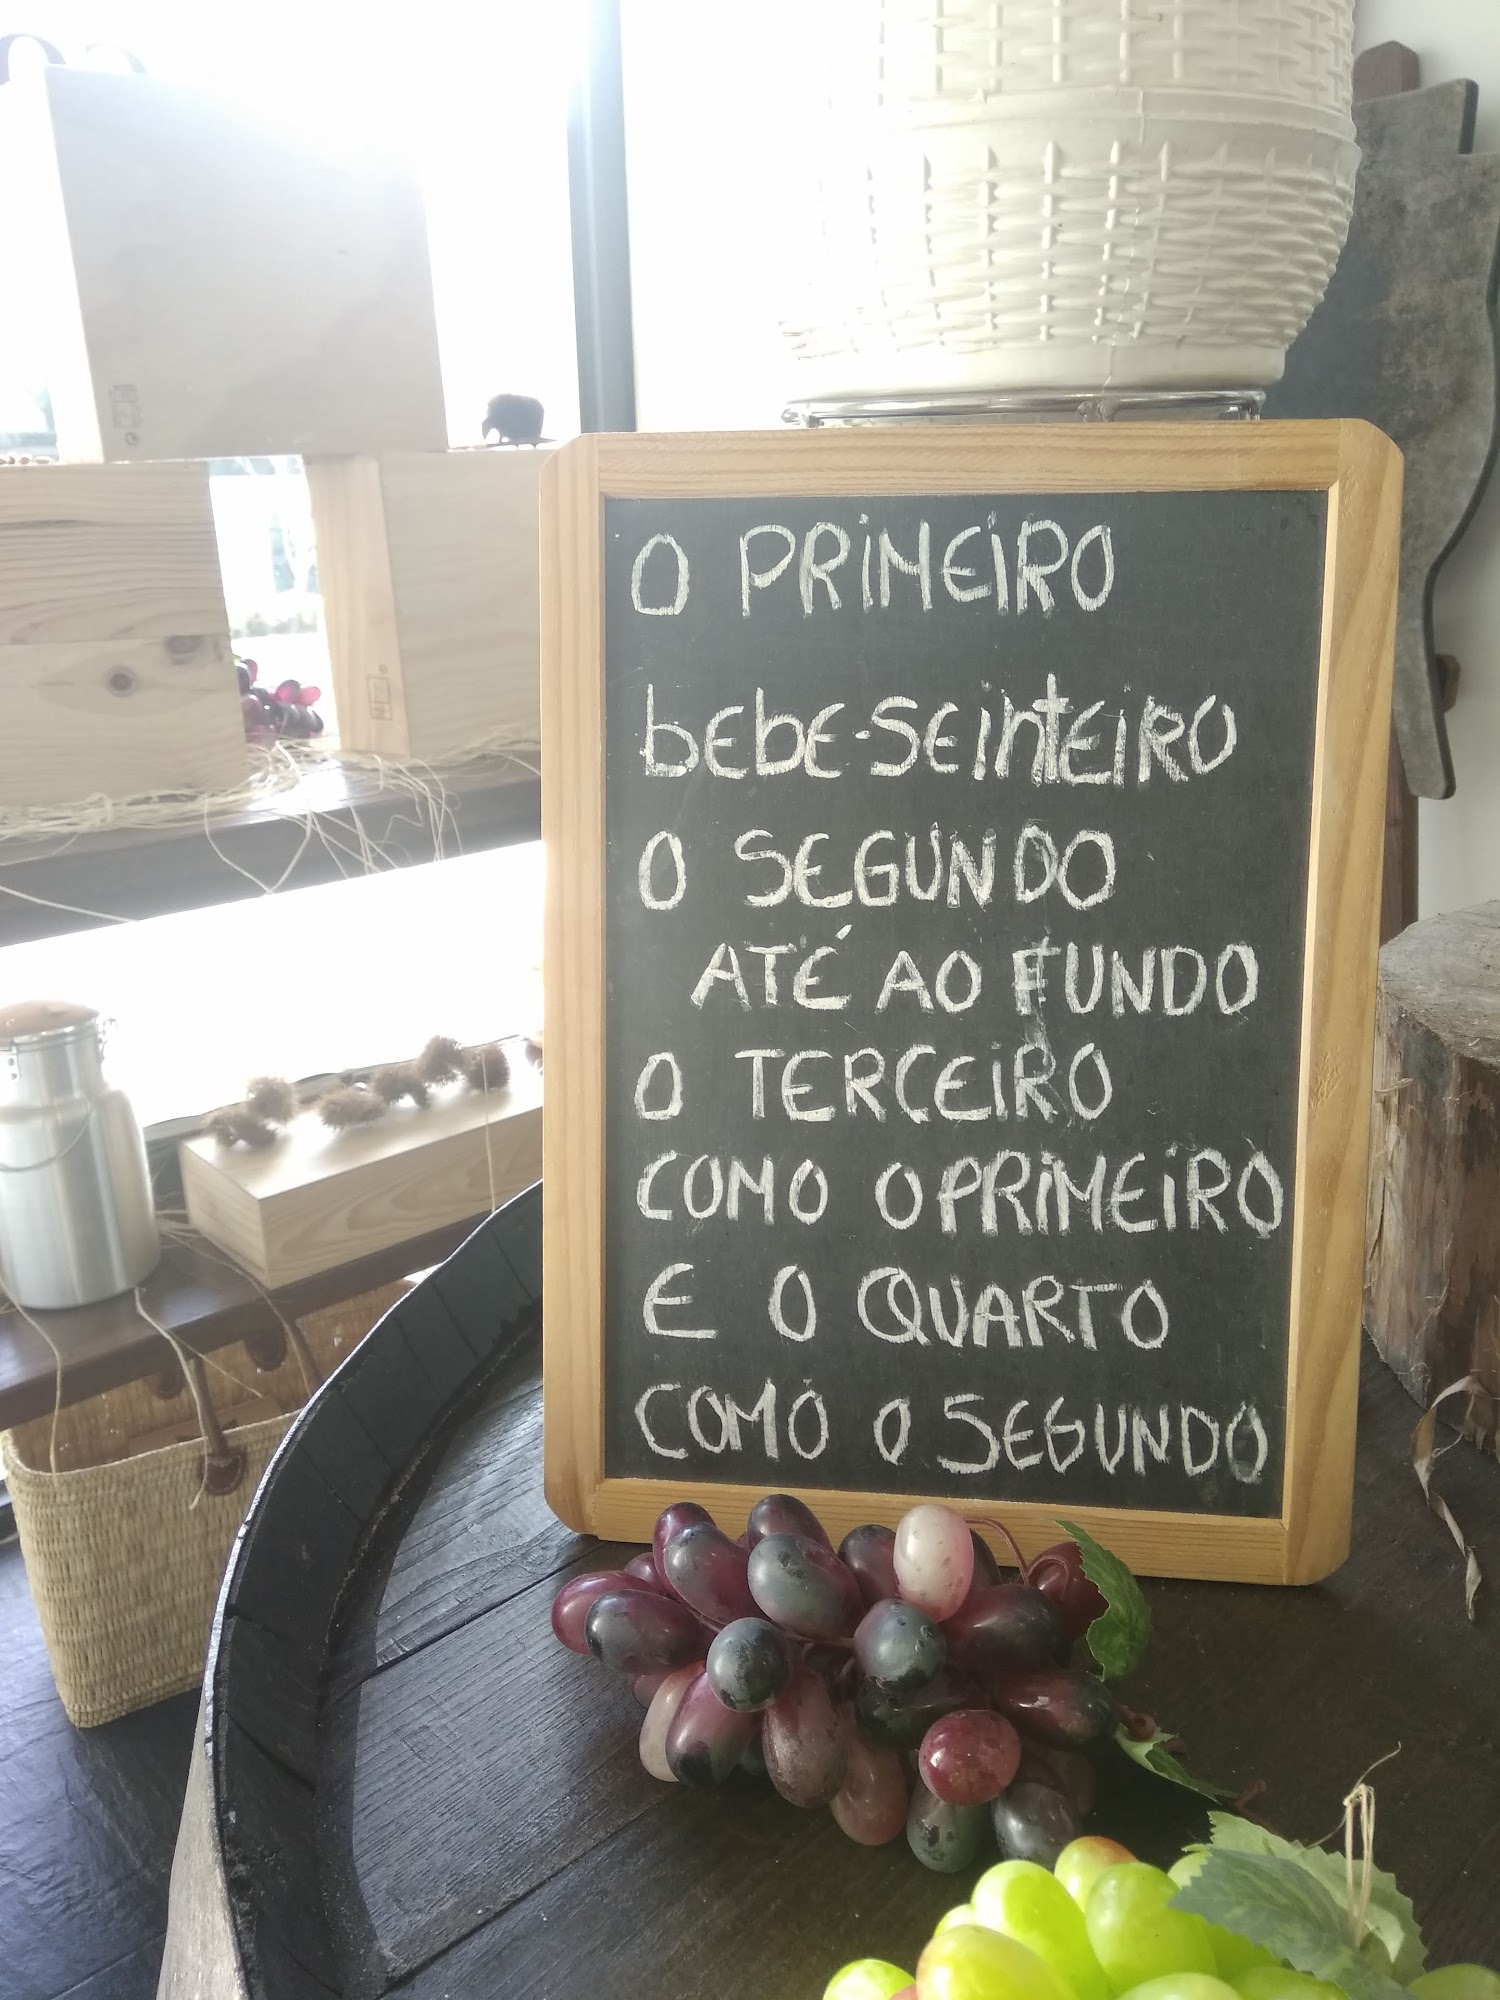 O PRIMEIRO
bEbE-SEiNTEiRO
O SEGUNDO
ATÉ AO FUNDO
O TERCEIRO
COMO O PRIMEIRO
E O QUARTO
COMO O SEGUNDO